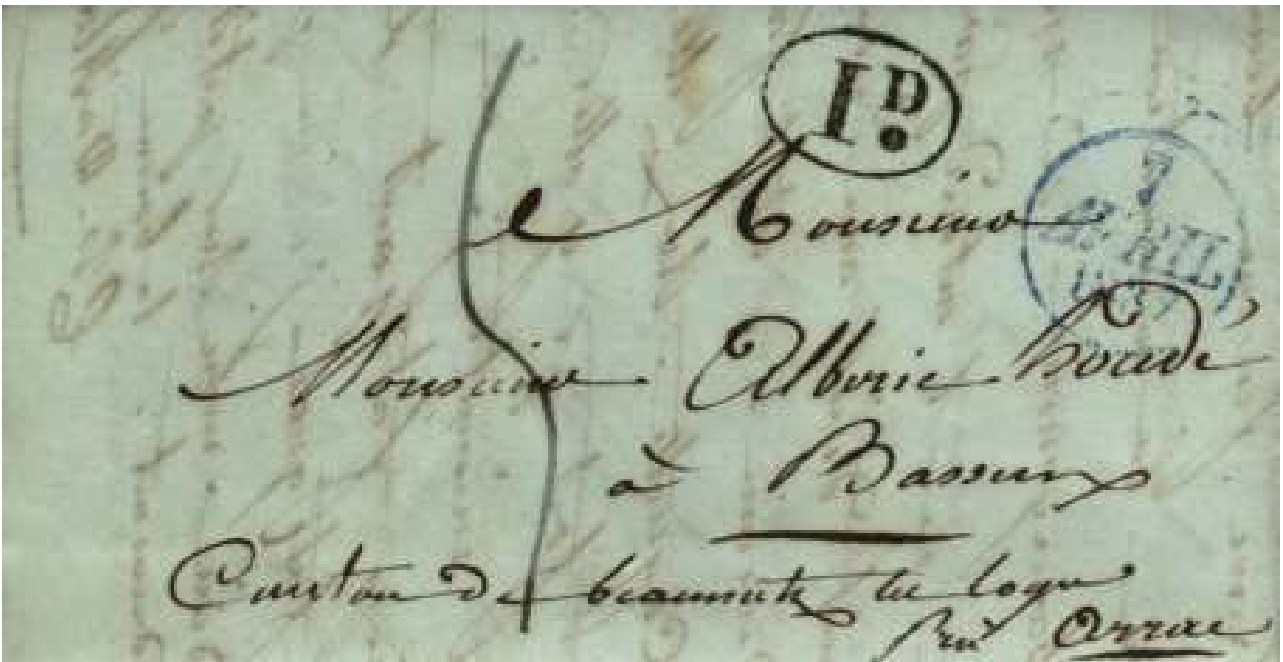 1D.
7
AVRIL
Monsieur
Monsieur Alberic
à Basseux
Canton de beaumetz les loges
Près Arras